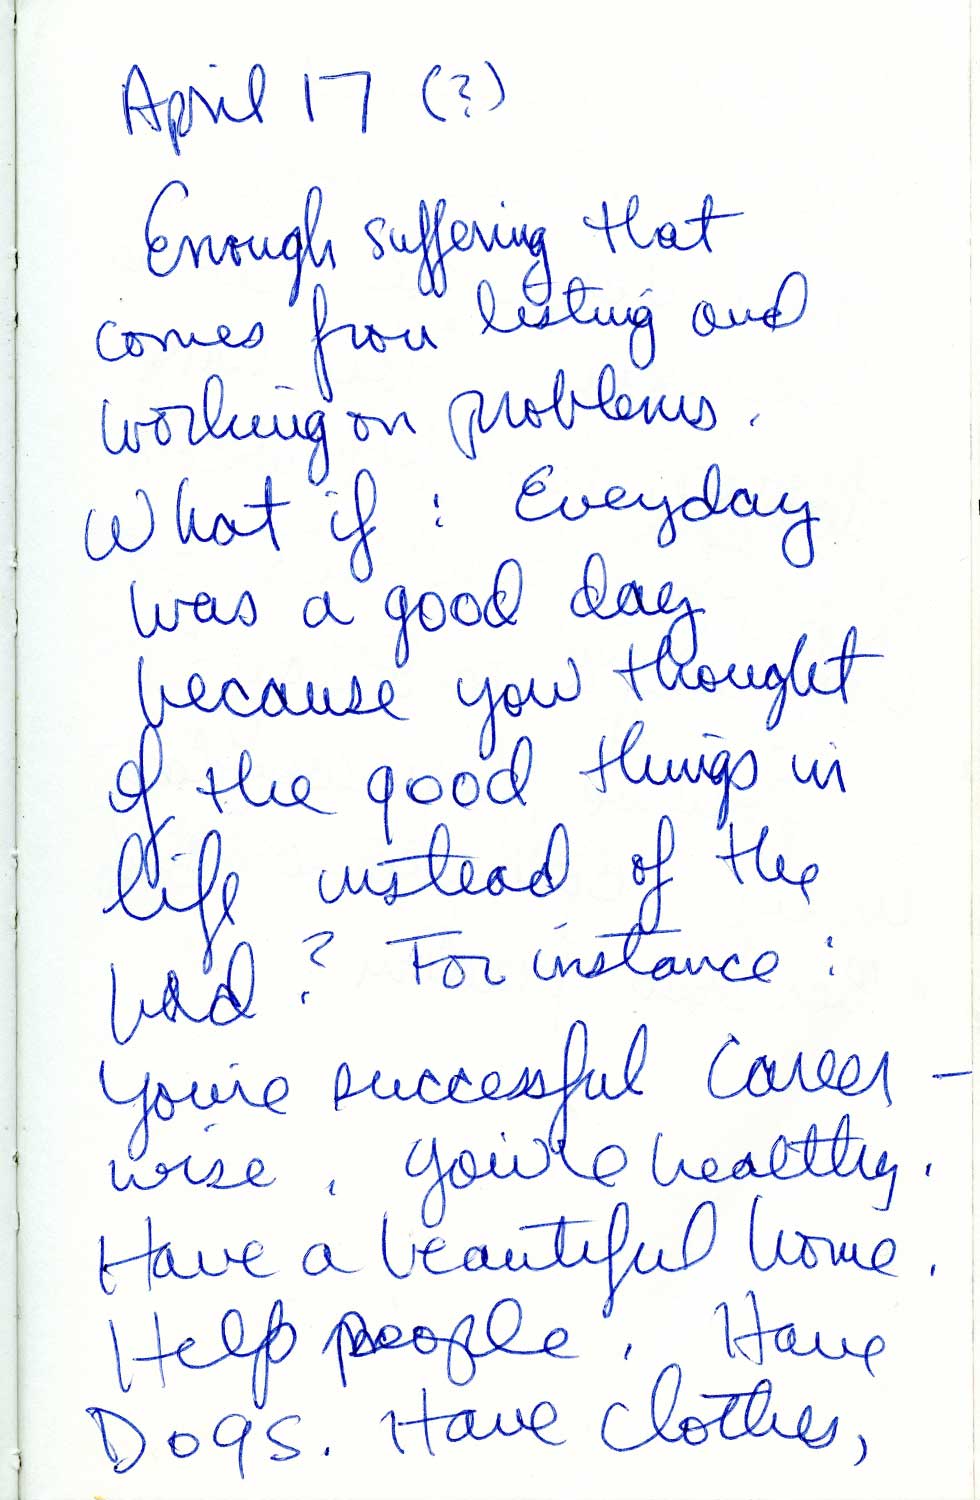 April 17 (?)
Enough suffering that
comes from listing and
working on problems.
What if : Everyday
was a good day
because you thought
of the good things in
life instead of the
bad? For instance :
You're successful career -
wise. You're healthy.
Have a beautiful home.
Help people. Have
Dogs. Have clothes,